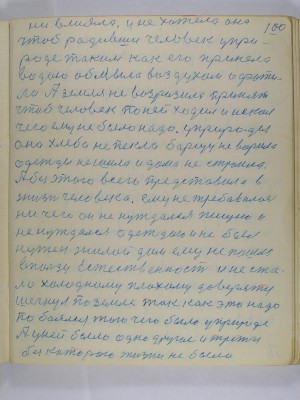 ни влюбила, и не хотела она
100
чтоб родивши человек у при-
роде таким как его приняла
водою обмывала воздухом
ла А земля не возразила принять
чтоб человек по ней ходил и искал
чего ему не было надо. у природы
она хлеба не пекла борщу не варила
одежды не шила и дома не строила.
Абы этого всего представила в
жизни человека. ему не требовалося
ни чего он не нуждался пищею и
не нуждался одеждою и не был
нужен жилой дом ему не
в жизни Естественность и не ста-
ло холодному плохому доверяти
шагнул по земле так как это надо
по боялся того чего было у природе
А у ней было одно другое и третье
без которого жизни не было